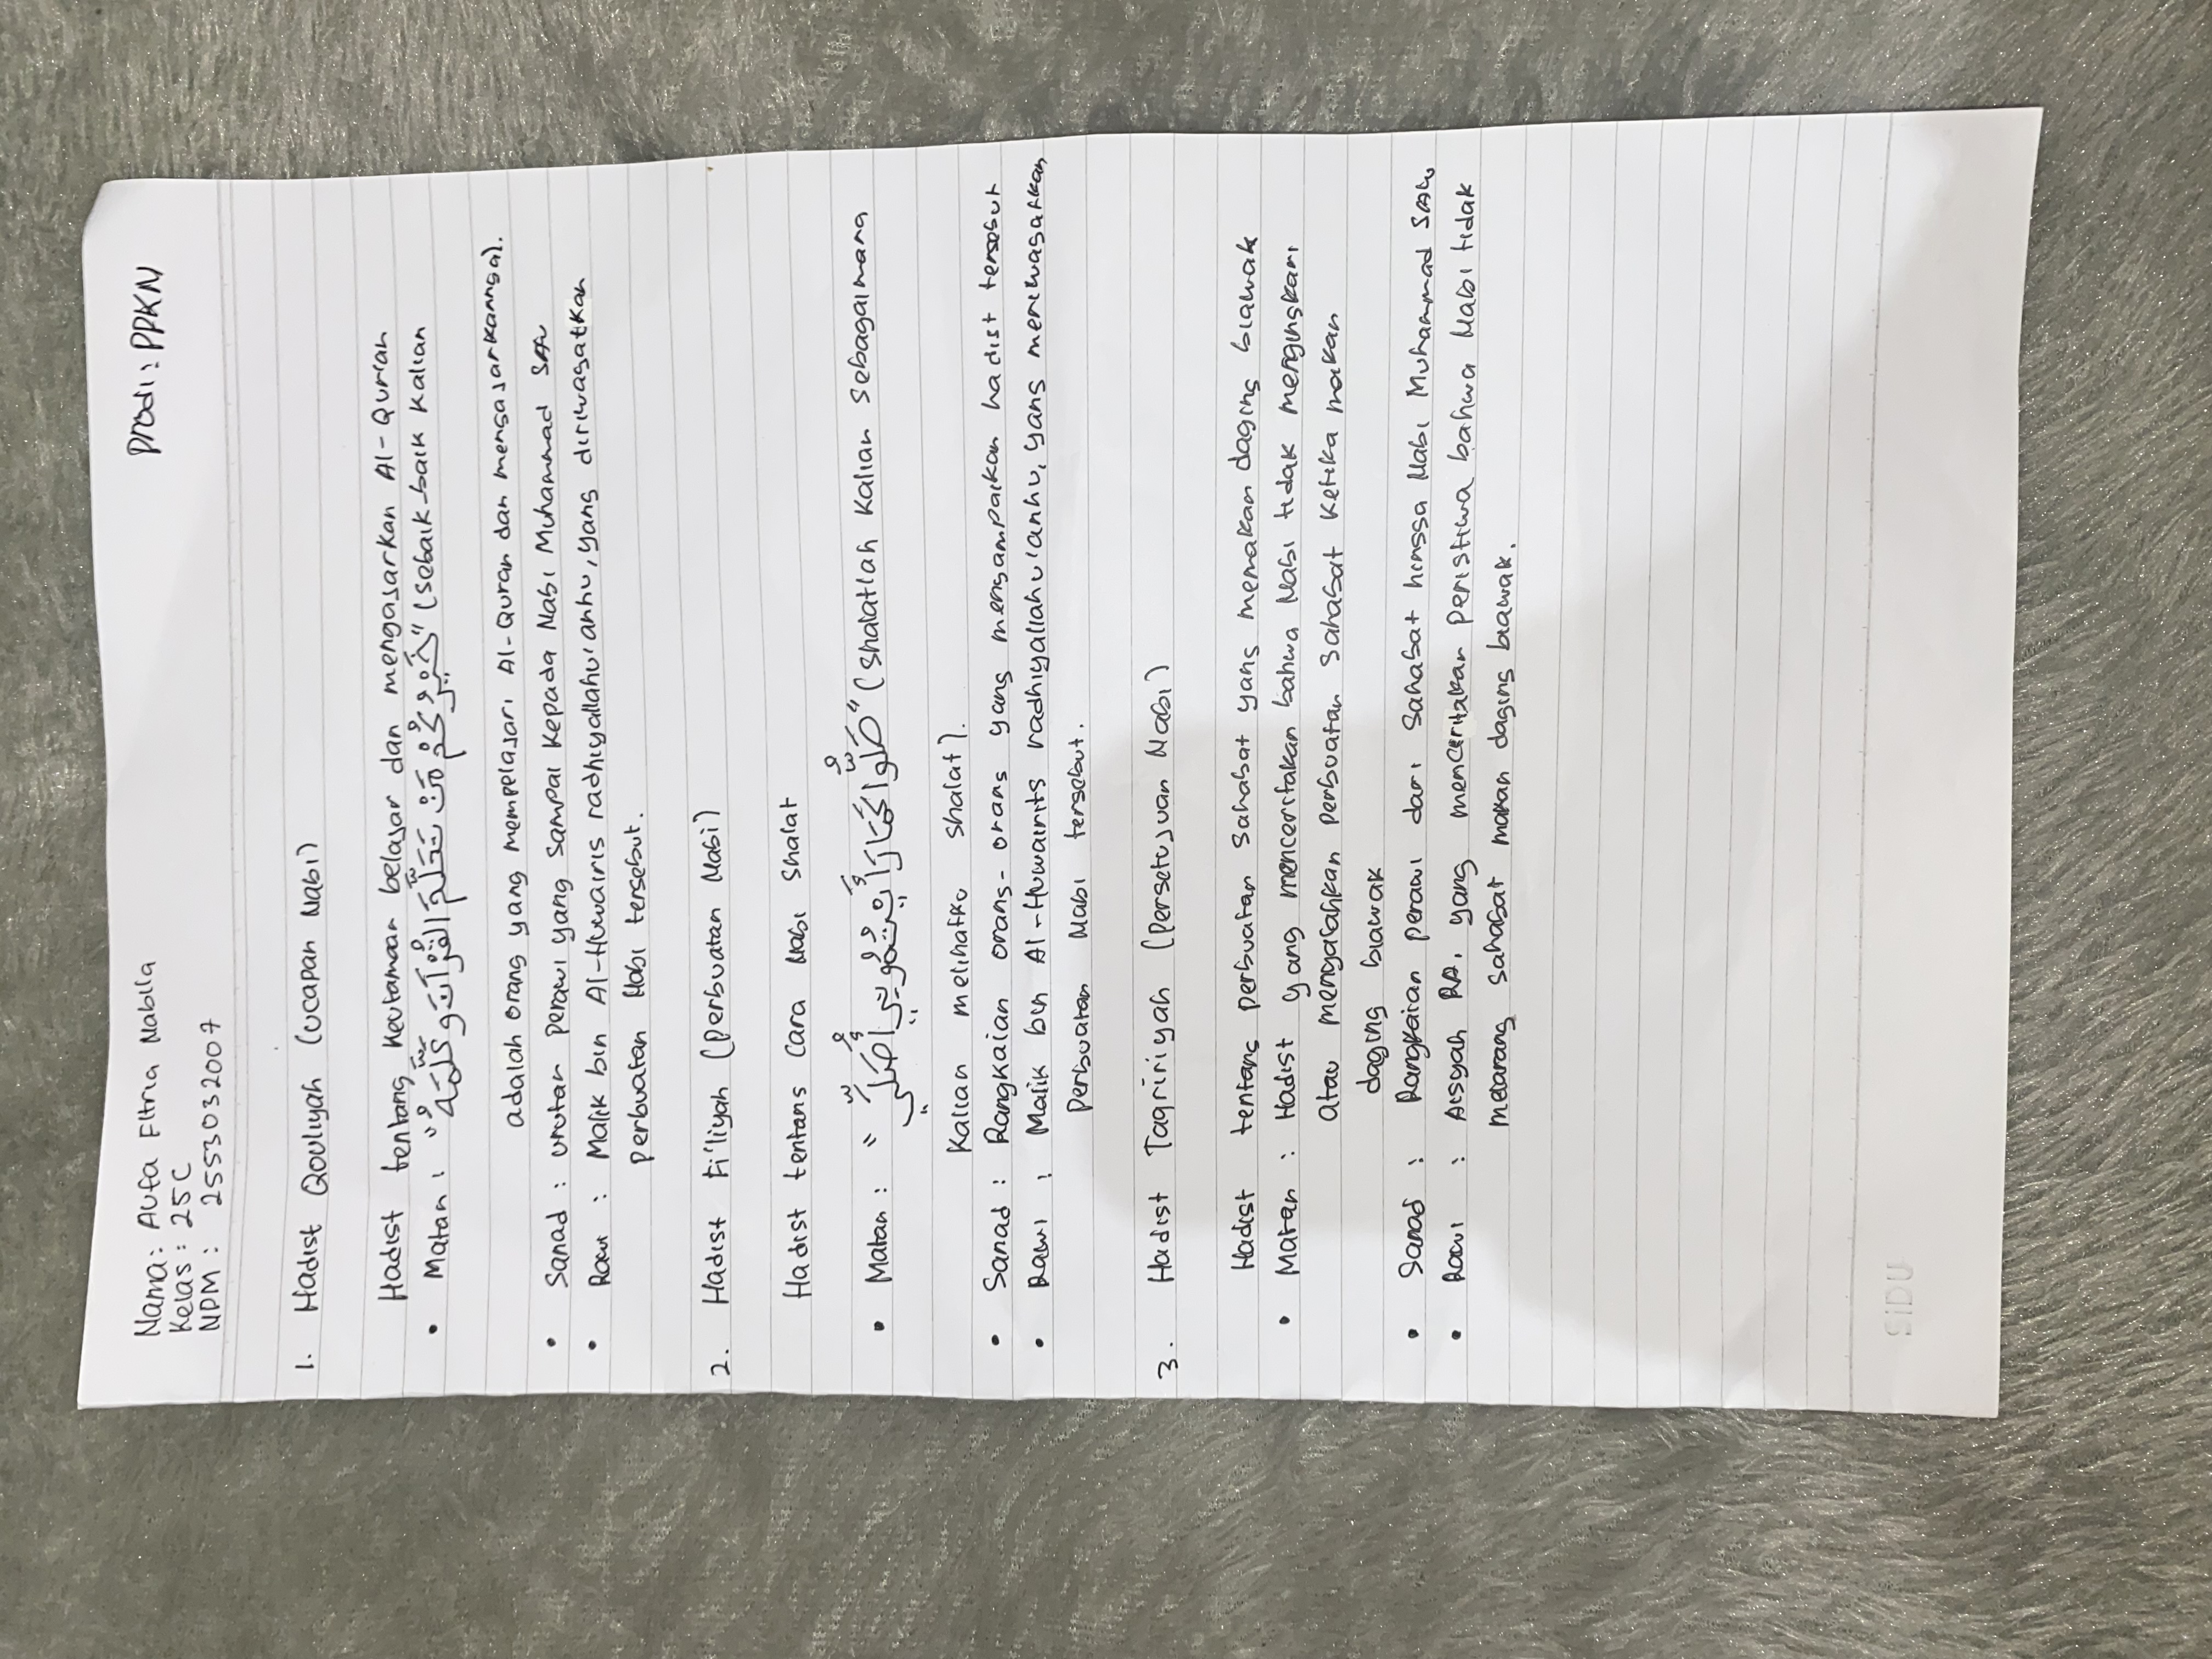 Nama: Aufa Fitria Nabila Prodi: PPKN
Kelas: 25C
NPM: 2553032007
1. Hadist Qouliyah (ucapan Nabi)
Hadist tentang keutamaan belajar dan mengajarkan Al-Quran
• Matan: " خَيْرُكُمْ مَنْ تَعَلَّمَ الْقُرْآنَ وَعَلَّمَهُ " (sebaik-baik kalian
adalah orang yang mempelajari Al-Quran dan mengajarkannya).
• Sanad: urutan perawi yang sampai kepada Nabi Muhammad SAW
• Rawi: Malik bin Al-Huwairis radhiyallahu'anhu, yang diriwayatkan
perbuatan Nabi tersebut.
2. Hadist Fi'liyah (perbuatan Nabi)
Hadist tentang cara Nabi shalat
• Matan: " صَلُّوا كَمَا رَأَيْتُمُونِي أُصَلِّي " (shalatlah kalian sebagaimana
kalian melihatku shalat).
• Sanad: Rangkaian orang-orang yang mengampaikan hadist tersebut
• Rawi: Malik bin Al-Huwairits radhiyallahu'anhu, yang meriwayatkan
perbuatan Nabi tersebut.
3. Hadist Taqririyah (persetujuan Nabi)
Hadist tentang perbuatan sahabat yang memakan daging biawak
• Matan: Hadist yang menceritakan bahwa Nabi tidak mengingkari
atau mengasahkan perbuatan sahabat ketika makan
daging biawak
• Sanad: Rangkaian perawi dari sahabat hingga Nabi Muhammad SAW
• Rawi: Aisyah RA, yang menceritakan peristiwa bahwa Nabi tidak
melarang sahabat makan daging biawak.
SIDU